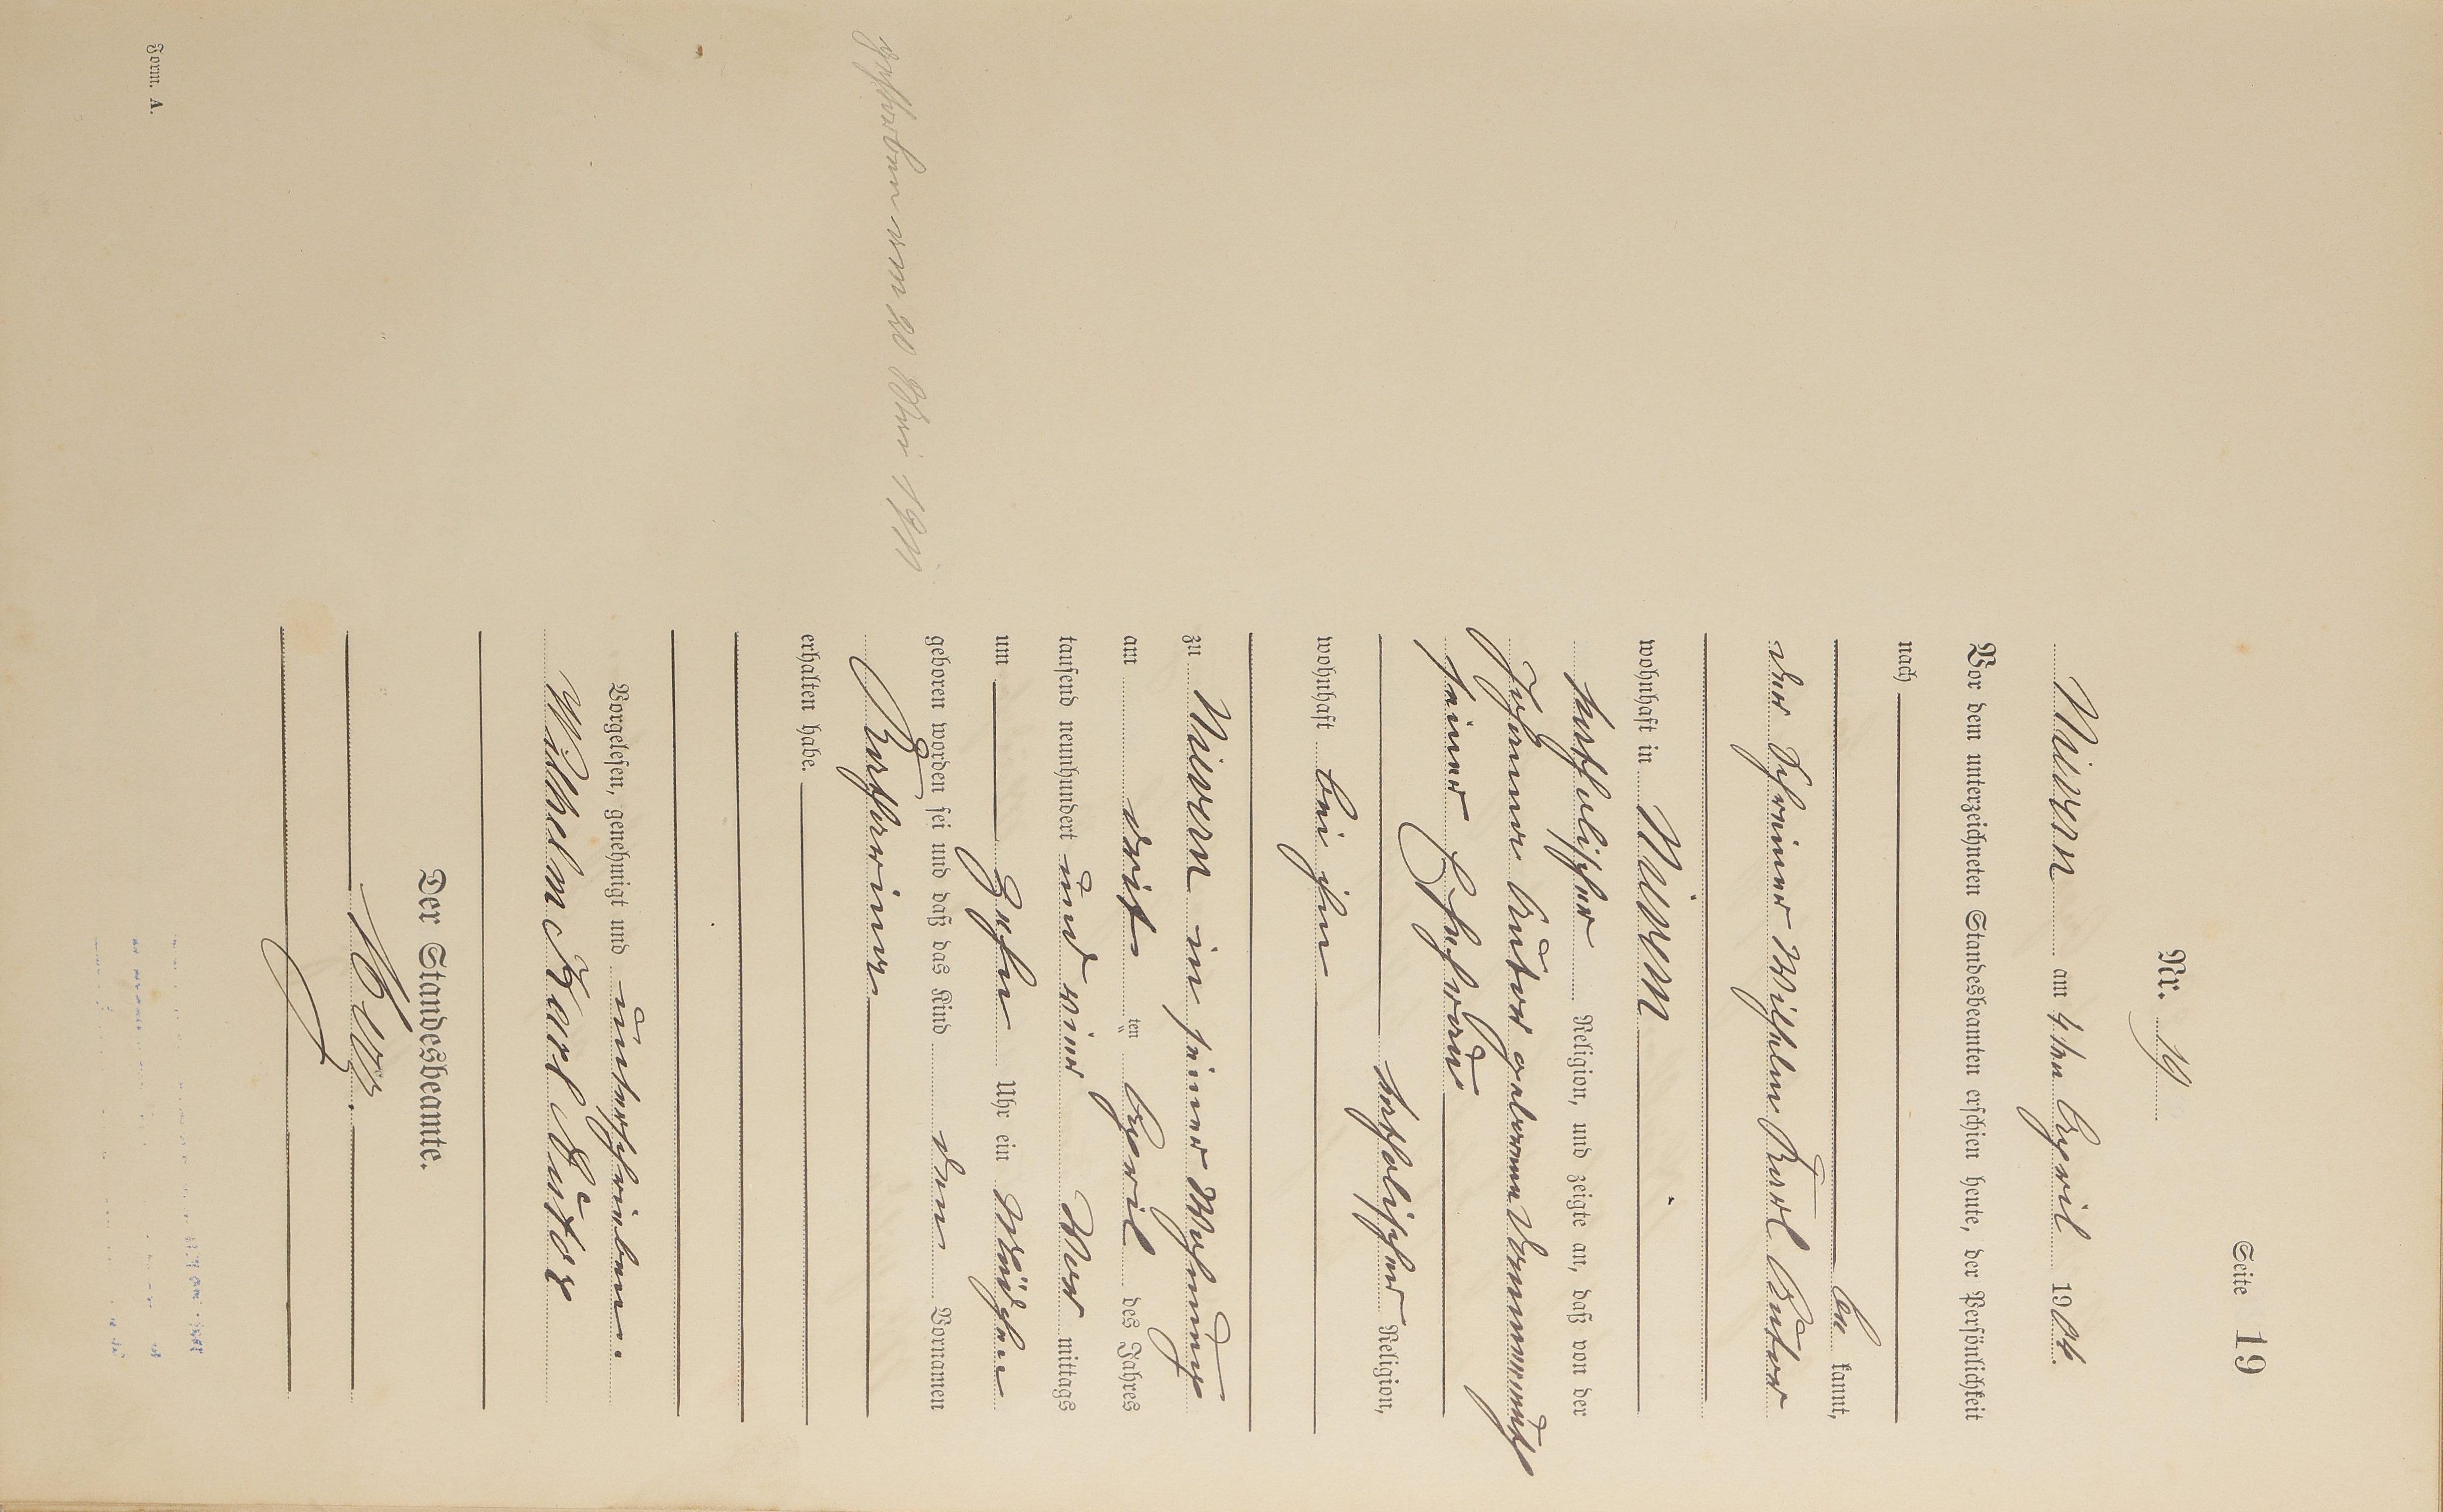 Seite 19
Nr. 19
Nievern am 4ten April 1904.
Vor dem unterzeichneten Standesbeamten erschien heute, der Persönlichkeit
nach
be kannt,
der Schreiner Wilhelm Karl Sutor
wohnhaft in Nievern
katholischer Religion, und zeigte an, daß von der
Johanna Sutor geborene Dommermuth
seiner Ehefrau
katholischer Religion,
wohnhaft bei ihm
zu Nievern in seiner Wohnung
am drit ten April des Jahres
tausend neunhundert und vier Vor mittags
um Zehn Uhr ein Mädchen
geboren worden sei und daß das Kind den Vornamen
Katharina
erhalten habe.
Vorgelesen, genehmigt und unterschrieben.
Wilhelm Karl Sutor
Der Standesbeamte.
gestorben am 20 Mai
Form. A.